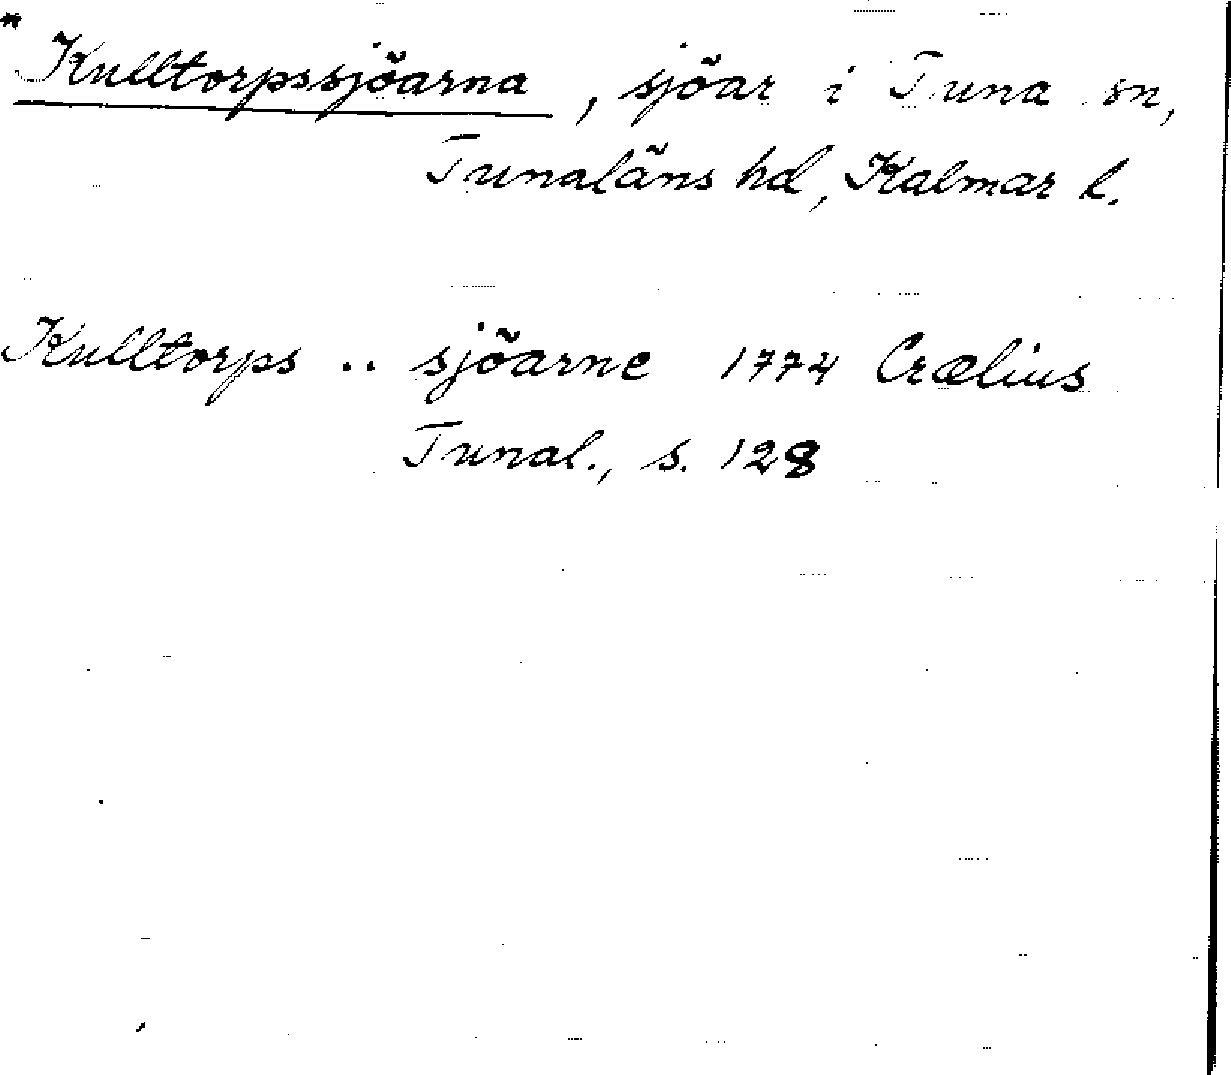 *Kulltorpssjöarna, sjöar i Tuna sn,
Tunaläns hd, Kalmar l.
Kulltorps .. sjöarne 1774 Crælius
Tunal., s. 128